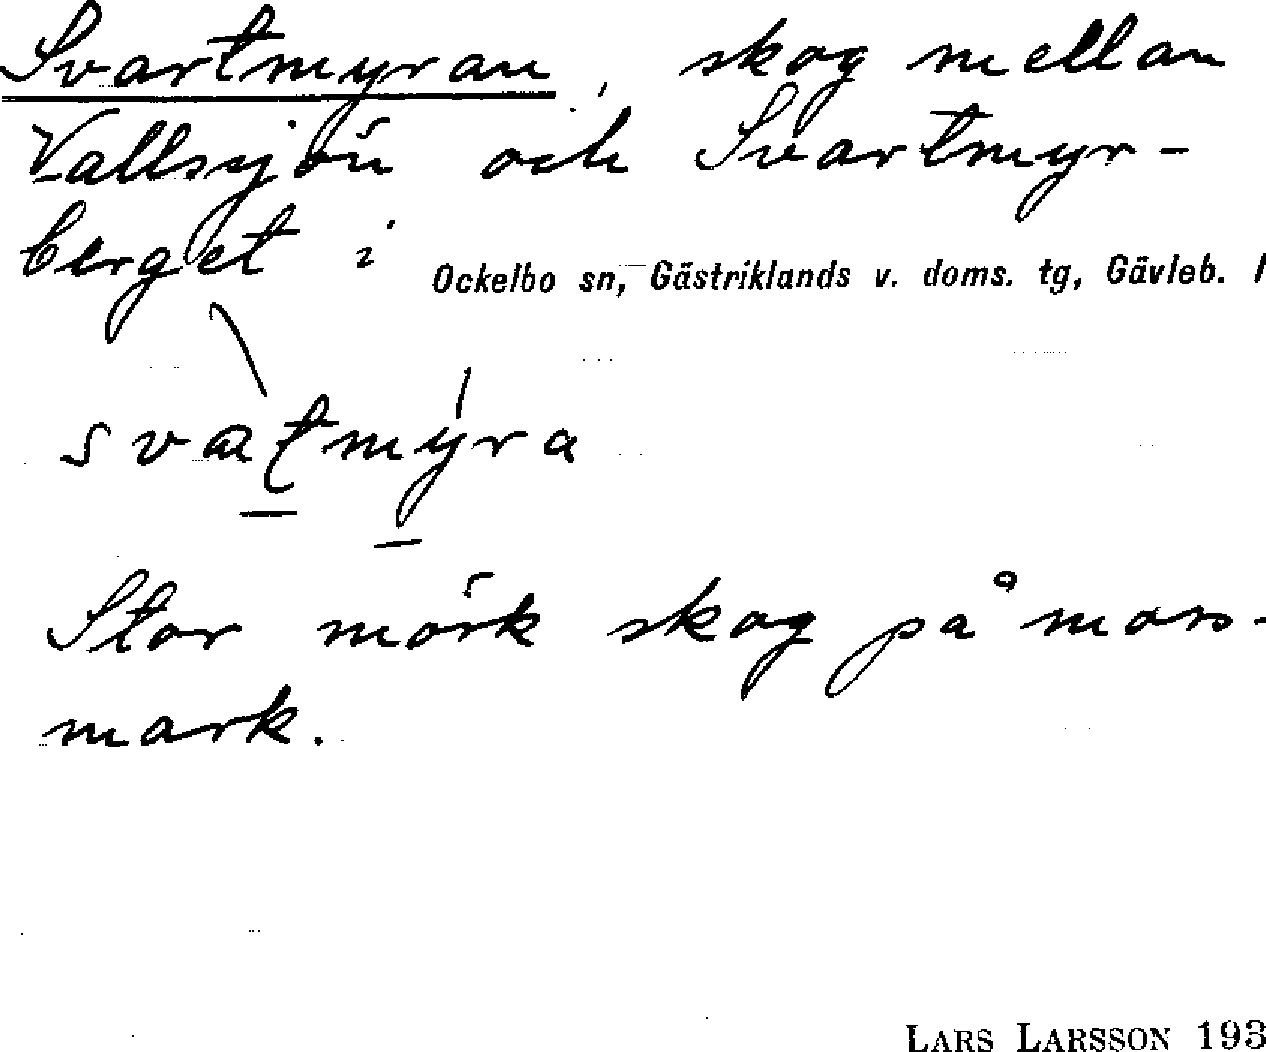 Svartmyran, skog mellan
Vallsjön och Svartmyr-
berget i Ockelbo sn, Gästriklands v. doms. tg, Gävleb. l
svatmyra
Stor mörk skog på moss-
mark.
LARS LARSSON 193